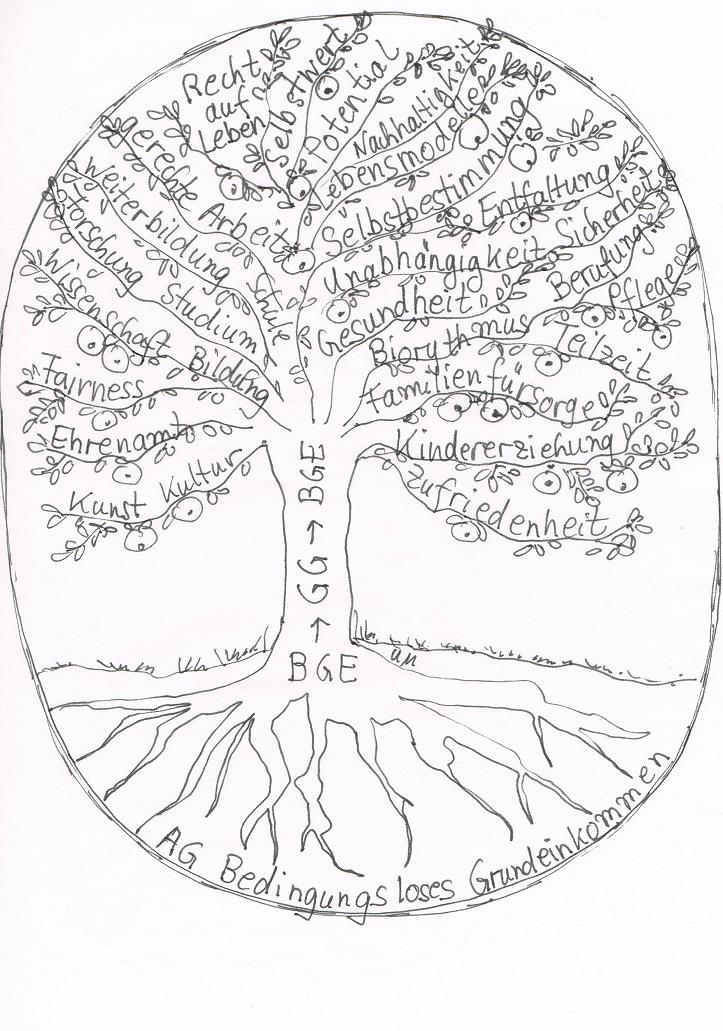 Recht
auf
Leben
Selbstwert
Potential
Nachhaltigkeit
Lebensmodelle
Selbstbestimmung
Entfaltung
Unabhängigkeit Sicherheit
Gesundheit Berufung
Biorythmus Pflege
Teilzeit
Familienfürsorge
Kindererziehung
Zufriedenheit
gerechte Arbeit
Weiterbildung Schule
Forschung Studium
Wissenschaft Bildung
Fairness
Ehrenamt
Kunst Kultur
BGE → GG → BGE
un
AG Bedingungsloses Grundeinkommen